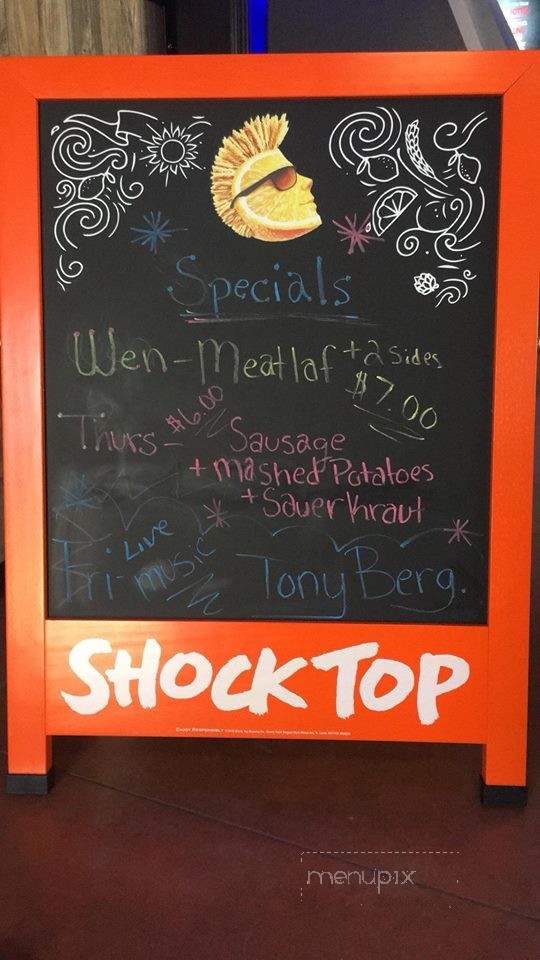 Specials
Wen-Meatlaf + 2 sides
$7.00
Thurs- $6.00 Sausage
+ mashed Potatoes
+ Sauerkraut
Fri- Live music Tony Berg.
SHOCK TOP
ENJOY RESPONSIBLY
menupix